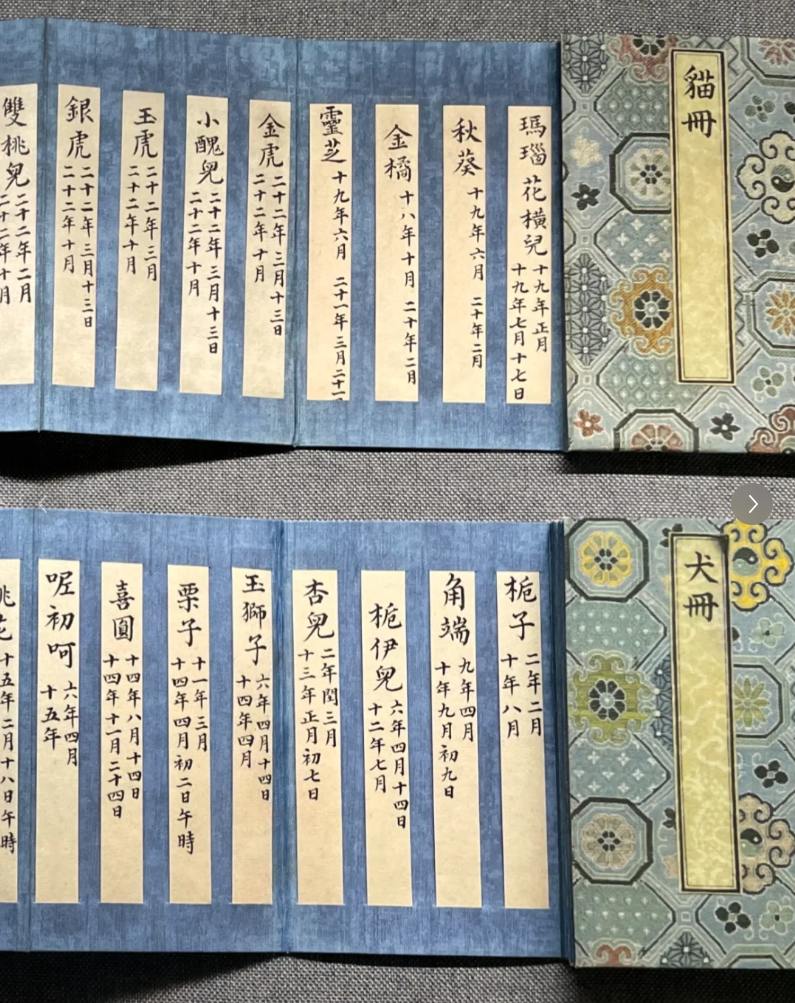 貓冊
瑪瑙 花橫兒
十九年正月
十九年七月十七日
秋葵
十九年六月 二十年二月
金橘
十八年十月 二十年二月
靈芝
十九年六月 二十一年三月二十一
金虎
二十二年三月十三日
二十二年十月
小醜兒
二十二年三月十三日
二十二年十月
玉虎
二十二年三月
二十二年十月
銀虎
二十二年三月十三日
二十二年十月
雙桃兒
二十二年二月
二十二年十月
犬冊
栀子
二年二月
十年八月
角端
九年四月
十年九月初九日
栀伊兒
六年四月十四日
十二年七月
杏兒
二年閏三月
十三年正月初七日
玉獅子
六年四月十四日
十四年四月
栗子
十一年三月
十四年四月初二日午時
喜圓
十四年八月十四日
十四年十一月二十四日
呢初呵
六年四月
十五年
桃花
十五年二月十八日午時